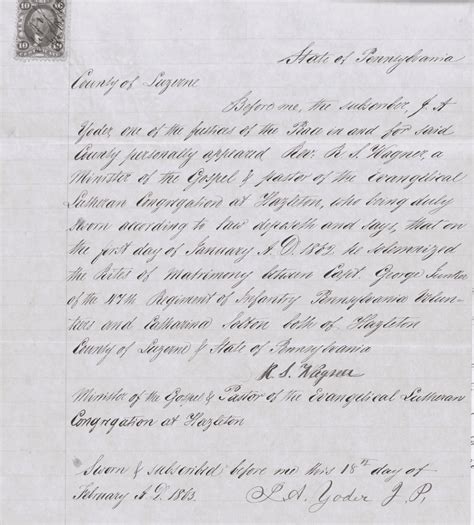 10 10
State of Pennsylvania
County of Luzerne
Before me, the subscriber, J. A
Yoder, one of the justices of the Peace in and for said
County personally appeared Rev. R. S. Wagner, a
Minister of the Gospel & pastor of the Evangelical
Lutheran Congregation at Hazleton, who being duly
sworn according to law deposeth and says, that on
the first day of January A. D. 1862 he solemnized
the Rites of Matrimony between Capt. George
of the 47th Regiment of Infantry Pennsylvania Volun-
teers and Catharina both of Hazleton
County of Luzerne & State of Pennsylvania
R. S. Wagner
Minister of the Gospel & Pastor of the Evangelical Lutheran
Congregation at Hazleton
Sworn & subscribed before me this 18th day of
February A. D. 1863. J. A. Yoder J. P.